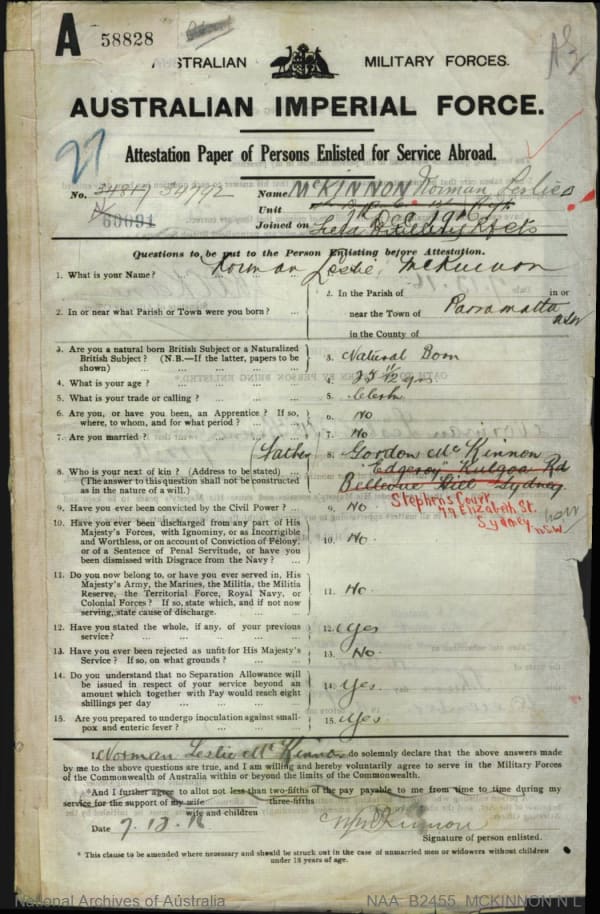 A 58828
AUSTRALIAN MILITARY FORCES.
AUSTRALIAN IMPERIAL FORCE.
27
Attestation Paper of Persons Enlisted for Service Abroad.
No. 34817 34792 Name McKINNON Norman Leslie
60091 Unit
Joined on 7th Dec 1916
Field Artillery Rfcts
Questions to be put to the Person Enlisting before Attestation.
1. What is your Name? ... Norman Leslie McKinnon
2. In or near what Parish or Town were you born? ... 2. In the Parish of in or
near the Town of Parramatta
in the County of NSW
3. Are you a natural born British Subject or a Naturalized British Subject? (N.B.—If the latter, papers to be shown) 3. Natural Born
4. What is your age? 4. 25 11/12 yrs
5. What is your trade or calling? 5. Clerk
6. Are you, or have you been, an Apprentice? If so, where, to whom, and for what period? 6. No
7. Are you married? 7. No
8. Who is your next of kin? (Address to be stated) ... (The answer to this question shall not be constructed as in the nature of a will.) (Father 8. Gordon McKinnon
"Edgeroy" Kulgoa Rd
Bellevue Hill Sydney
Stephens Court
79 Elizabeth St.
Sydney
NSW
9. Have you ever been convicted by the Civil Power? 9. No
10. Have you ever been discharged from any part of His Majesty's Forces, with Ignominy, or as Incorrigible and Worthless, or on account of Conviction of Felony, or of a Sentence of Penal Servitude, or have you been dismissed with Disgrace from the Navy? 10. No.
11. Do you now belong to, or have you ever served in, His Majesty's Army, the Marines, the Militia, the Militia Reserve, the Territorial Force, Royal Navy, or Colonial Forces? If so, state which, and if not now serving, state cause of discharge. 11. No.
12. Have you stated the whole, if any, of your previous service? 12. Yes
13. Have you ever been rejected as unfit for His Majesty's Service? If so, on what grounds? 13. No.
14. Do you understand that no Separation Allowance will be issued in respect of your service beyond an amount which together with Pay would reach eight shillings per day 14. Yes.
15. Are you prepared to undergo inoculation against small-pox and enteric fever? 15. Yes
I, Norman Leslie McKinnon do solemnly declare that the above answers made
by me to the above questions are true, and I am willing and hereby voluntarily agree to serve in the Military Forces
of the Commonwealth of Australia within or beyond the limits of the Commonwealth.
*And I further agree to allot not less than two-fifths of the pay payable to me from time to time during
three-fifths
my service for the support of my wife
wife and children
Date 7.12.16 N L McKinnon
Signature of person enlisted.
* This clause to be amended where necessary and should be struck out in the case of unmarried men or widowers without children
under 18 years of age.
National Archives of Australia NAA B2455, MCKINNON N L